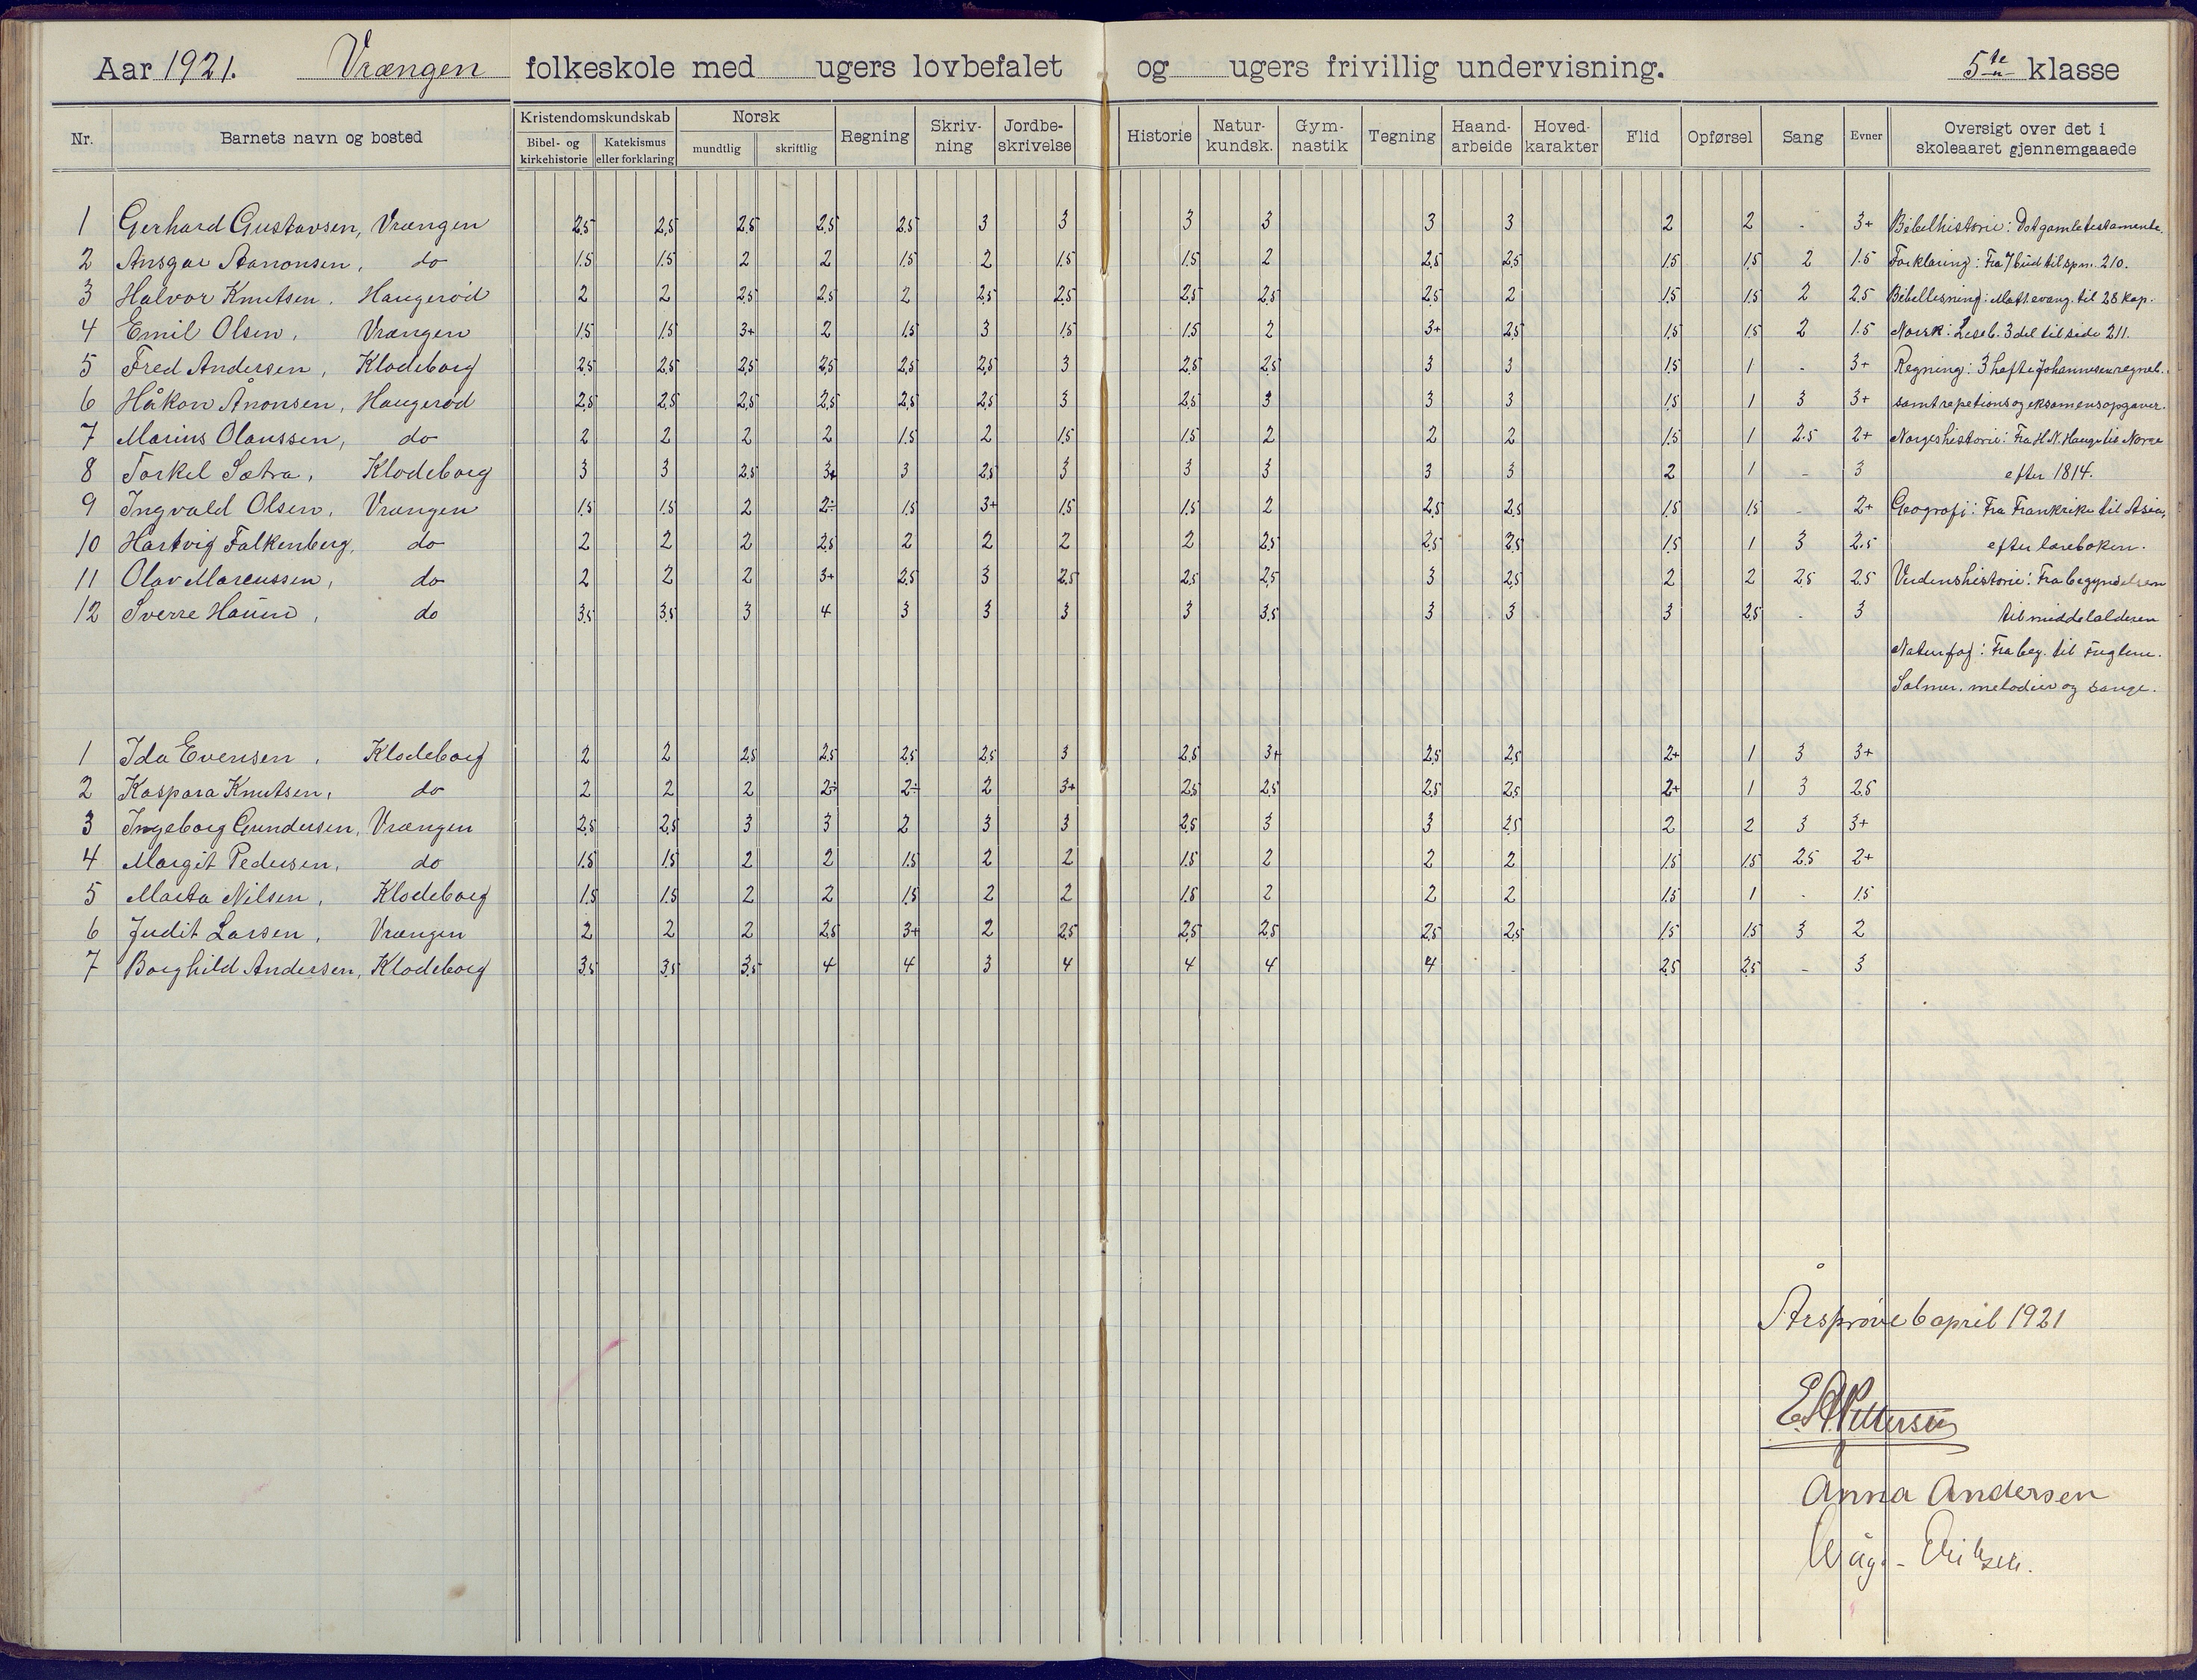 Aar 1921. Vrængen folkeskole med ugers lovbefalet og ugers frivillig undervisning. 5te klasse
Nr. Barnets navn og bosted Kristendomskundskab Bibel- og kirkehistorie Katekismus eller forklaring Norsk mundtlig skriftlig Regning Skriv-ning Jordbe-skrivelse Historie Natur-kundsk. Gym-nastik Tegning Haand-arbeide Hoved-karakter Flid Opførsel Sang Evner Oversigt over det i skoleaaret gjennemgaaede
1 Gerhard Gustavsen, Vrængen 2,5 2,5 2,5 2,5 2,5 3 3 3 3 3 3 2 2 - 3+ Bibelhistorie: Det gamle testamente.
2 Ansgar Aanonsen, do 1.5 1.5 2 2 1.5 2 1.5 1.5 2 2,5 2,5 1.5 1.5 2 1.5 Forklaring: Fra 7 bud til spm. 210.
3 Halvor Knutsen, Haugerød 2 2 2,5 2,5 2 2,5 2,5 2,5 2,5 2,5 2 1.5 1.5 2 2.5 Bibellesning: Matt evang. til 28 kap.
4 Emil Olsen, Vrængen 1.5 1.5 3+ 2 1.5 3 1.5 1.5 2 3+ 2,5 1.5 1.5 2 1.5 Norsk: Leseb. 3 del til side 211.
5 Fred Andersen, Klodeborg 2,5 2,5 2,5 2,5 2,5 2,5 3 2,5 2,5 3 3 1.5 1 - 3+ Regning: 3 hefte Johannesen regneb.
6 Håkon Ånonsen, Haugerød 2,5 2,5 2,5 2,5 2,5 2,5 3 2,5 3 3 3 1.5 1 3 3+ samt repetions og eksamensopgaver.
7 Marius Olaussen, do 2 2 2 2 1.5 2 1.5 1.5 2 2 2 1.5 1 2.5 2+ Norgeshistorie: Fra H. N. Hauge til Norge
8 Torkel Sætra, Klodeborg 3 3 2.5 3+ 3 2,5 3 3 3 3 3 2 1 - 3 efter 1814.
9 Ingvald Olsen, Vrængen 1.5 1.5 2 2÷ 1.5 3+ 1.5 1.5 2 2,5 2,5 1.5 1.5 - 2+ Geografi: Fra Frankrike til Asia,
10 Hartvig Falkenberg, do 2 2 2 2,5 2 2 2 2 2,5 2,5 2,5 1.5 1 3 2.5 efter læreboken.
11 Olav Marcussen, do 2 2 2 3+ 2,5 3 2,5 2,5 2,5 3 2,5 2 2 2,5 2.5 Verdenshistorie: Fra begyndelsen
12 Sverre Haum, do 3,5 3,5 3 4 3 3 3 3 3,5 3 3 3 2,5 - 3 til middelalderen
Naturfag: Fra beg. til fuglene.
Salmer, melodier og sange.
1 Ida Evensen, Klodeborg 2 2 2,5 2,5 2,5 2,5 3 2,5 3+ 2,5 2,5 2+ 1 3 3+
2 Kaspara Knutsen, do 2 2 2 2÷ 2÷ 2 3+ 2,5 2,5 2,5 2,5 2+ 1 3 2.5
3 Ingeborg Gundersen, Vrængen 2,5 2,5 3 3 2 3 3 2,5 3 3 2,5 2 2 3 3+
4 Margit Pedersen, do 1.5 1.5 2 2 1.5 2 2 1.5 2 2 2 1.5 1.5 2.5 2+
5 Marta Nilsen, Klodeborg 1.5 1.5 2 2 1.5 2 2 1.5 2 2 2 1.5 1 - 1.5
6 Judit Larsen, Vrængen 2 2 2 2,5 3+ 2 2,5 2,5 2,5 2,5 2,5 1.5 1.5 3 2
7 Borghild Andersen, Klodeborg 3,5 3,5 3,5 4 4 3 4 4 4 4 - 2,5 2,5 - 3
Årsprøve 6 april 1921
E. A. Pettersen
Anna Andersen
Eriksen.